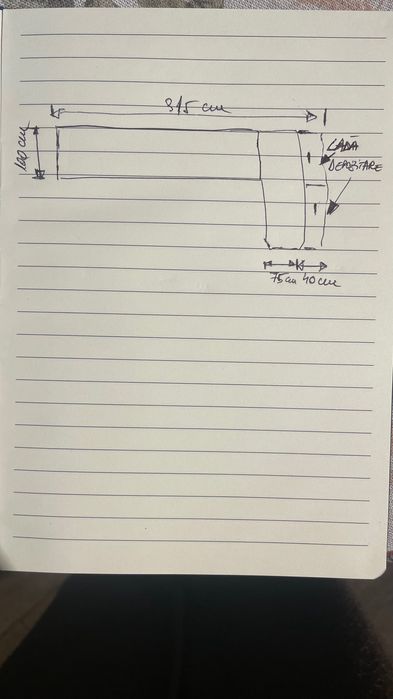 315 cm
100 cm
LADĂ
DEPOZITARE
75cm 40cm